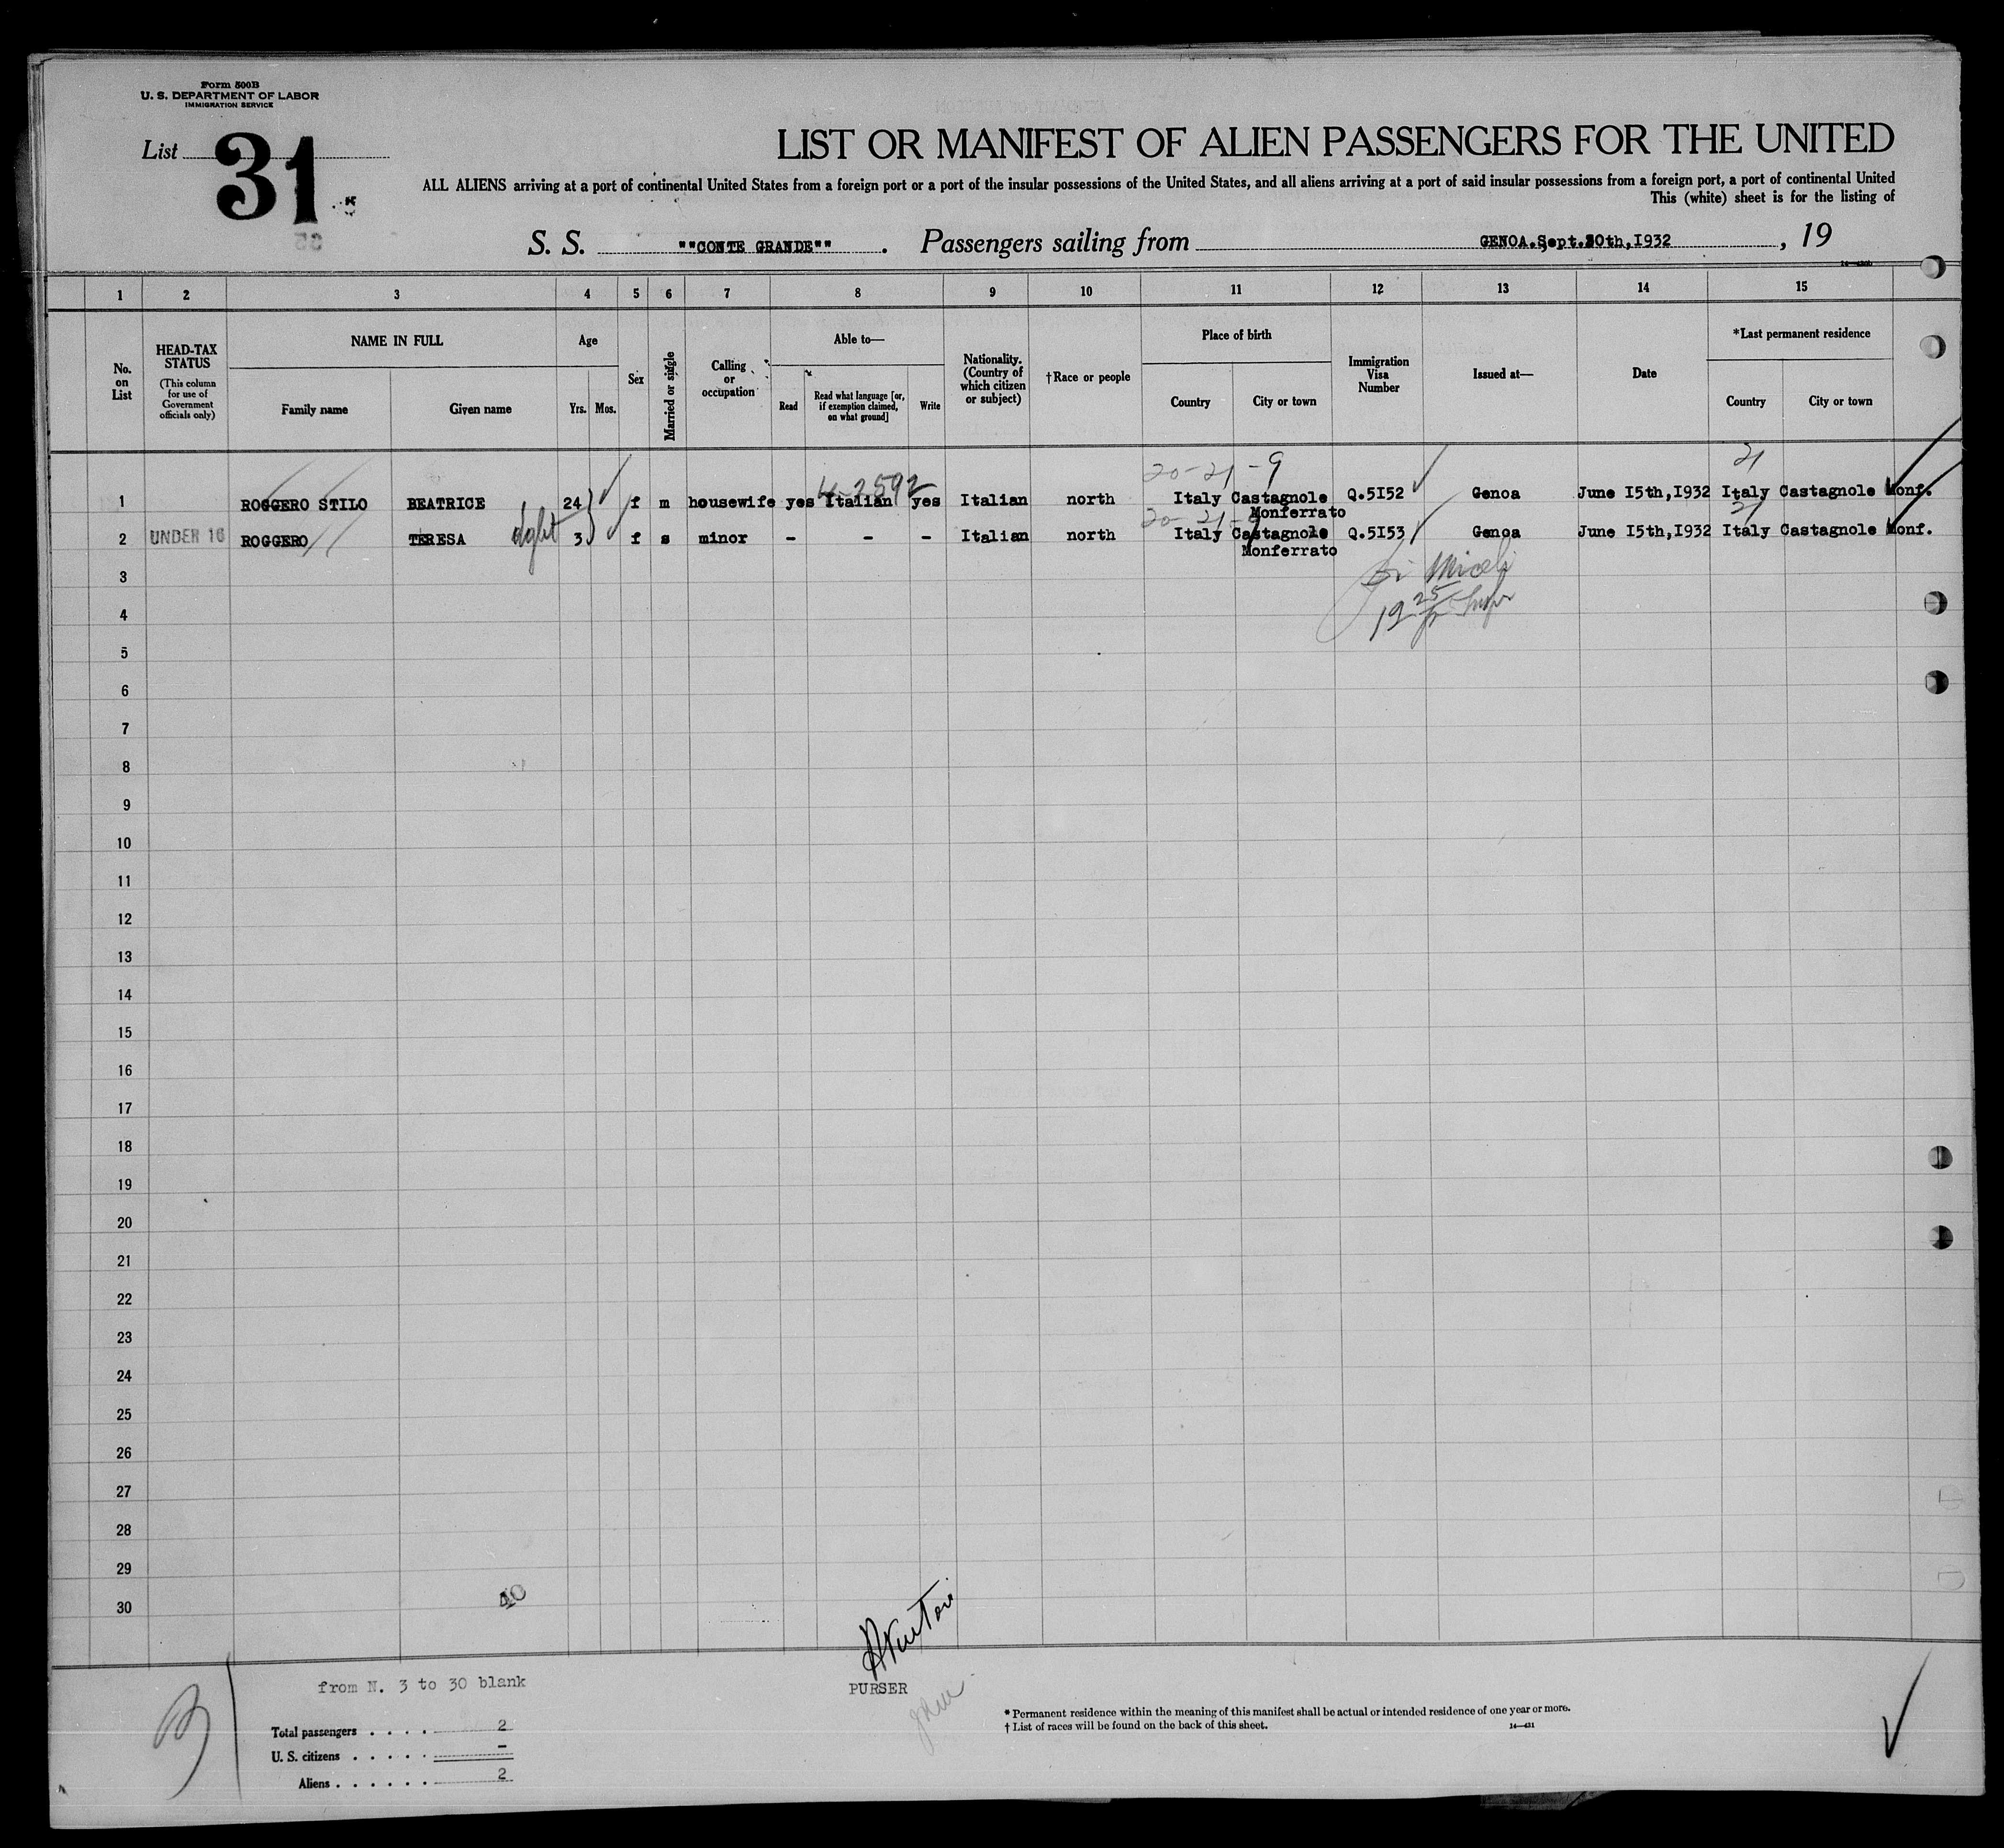 Form 500B
U. S. DEPARTMENT OF LABOR
IMMIGRATION SERVICE
List 31
LIST OR MANIFEST OF ALIEN PASSENGERS FOR THE UNITED
ALL ALIENS arriving at a port of continental United States from a foreign port or a port of the insular possessions of the United States, and all aliens arriving at a port of said insular possessions from a foreign port, a port of continental United
This (white) sheet is for the listing of
S. S. ""CONTE GRANDE"". Passengers sailing from GENOA.Sept. , 1932, 19
1 2 3 4 5 6 7 8 9 10 11 12 13 14 15
No. on List
HEAD-TAX STATUS
(This column for use of Government officials only)
NAME IN FULL
Family name Given name
Age
Yrs. Mos.
Sex
Married or single
Calling or occupation
Able to—
Read
Read what language [or, if exemption claimed, on what ground]
Write
Nationality. (Country of which citizen or subject)
†Race or people
Place of birth
Country City or town
Immigration Visa Number
Issued at—
Date
*Last permanent residence
Country City or town
20-21-9 21
4-2592
1 ROGGERO STILO BEATRICE 24 f m housewife yes Italian yes Italian north Italy Castagnole Q.5I52 Genoa June I5th,I932 Italy Castagnole Monf.
Monferrato
20-21-9 21
2 UNDER 16 ROGGERO TERESA dght 3 f s minor - - - Italian north Italy Castagnole Q.5I53 Genoa June I5th,I932 Italy Castagnole Monf.
Monferrato
3
4
5
6
7
8
9
10
11
12
13
14
15
16
17
18
19
20
21
22
23
24
25
26
27
28
29
30
40
from N. 3 to 30 blank
PURSER
Total passengers . . . . 2
U. S. citizens . . . . . -
Aliens . . . . . . 2
* Permanent residence within the meaning of this manifest shall be actual or intended residence of one year or more.
† List of races will be found on the back of this sheet.